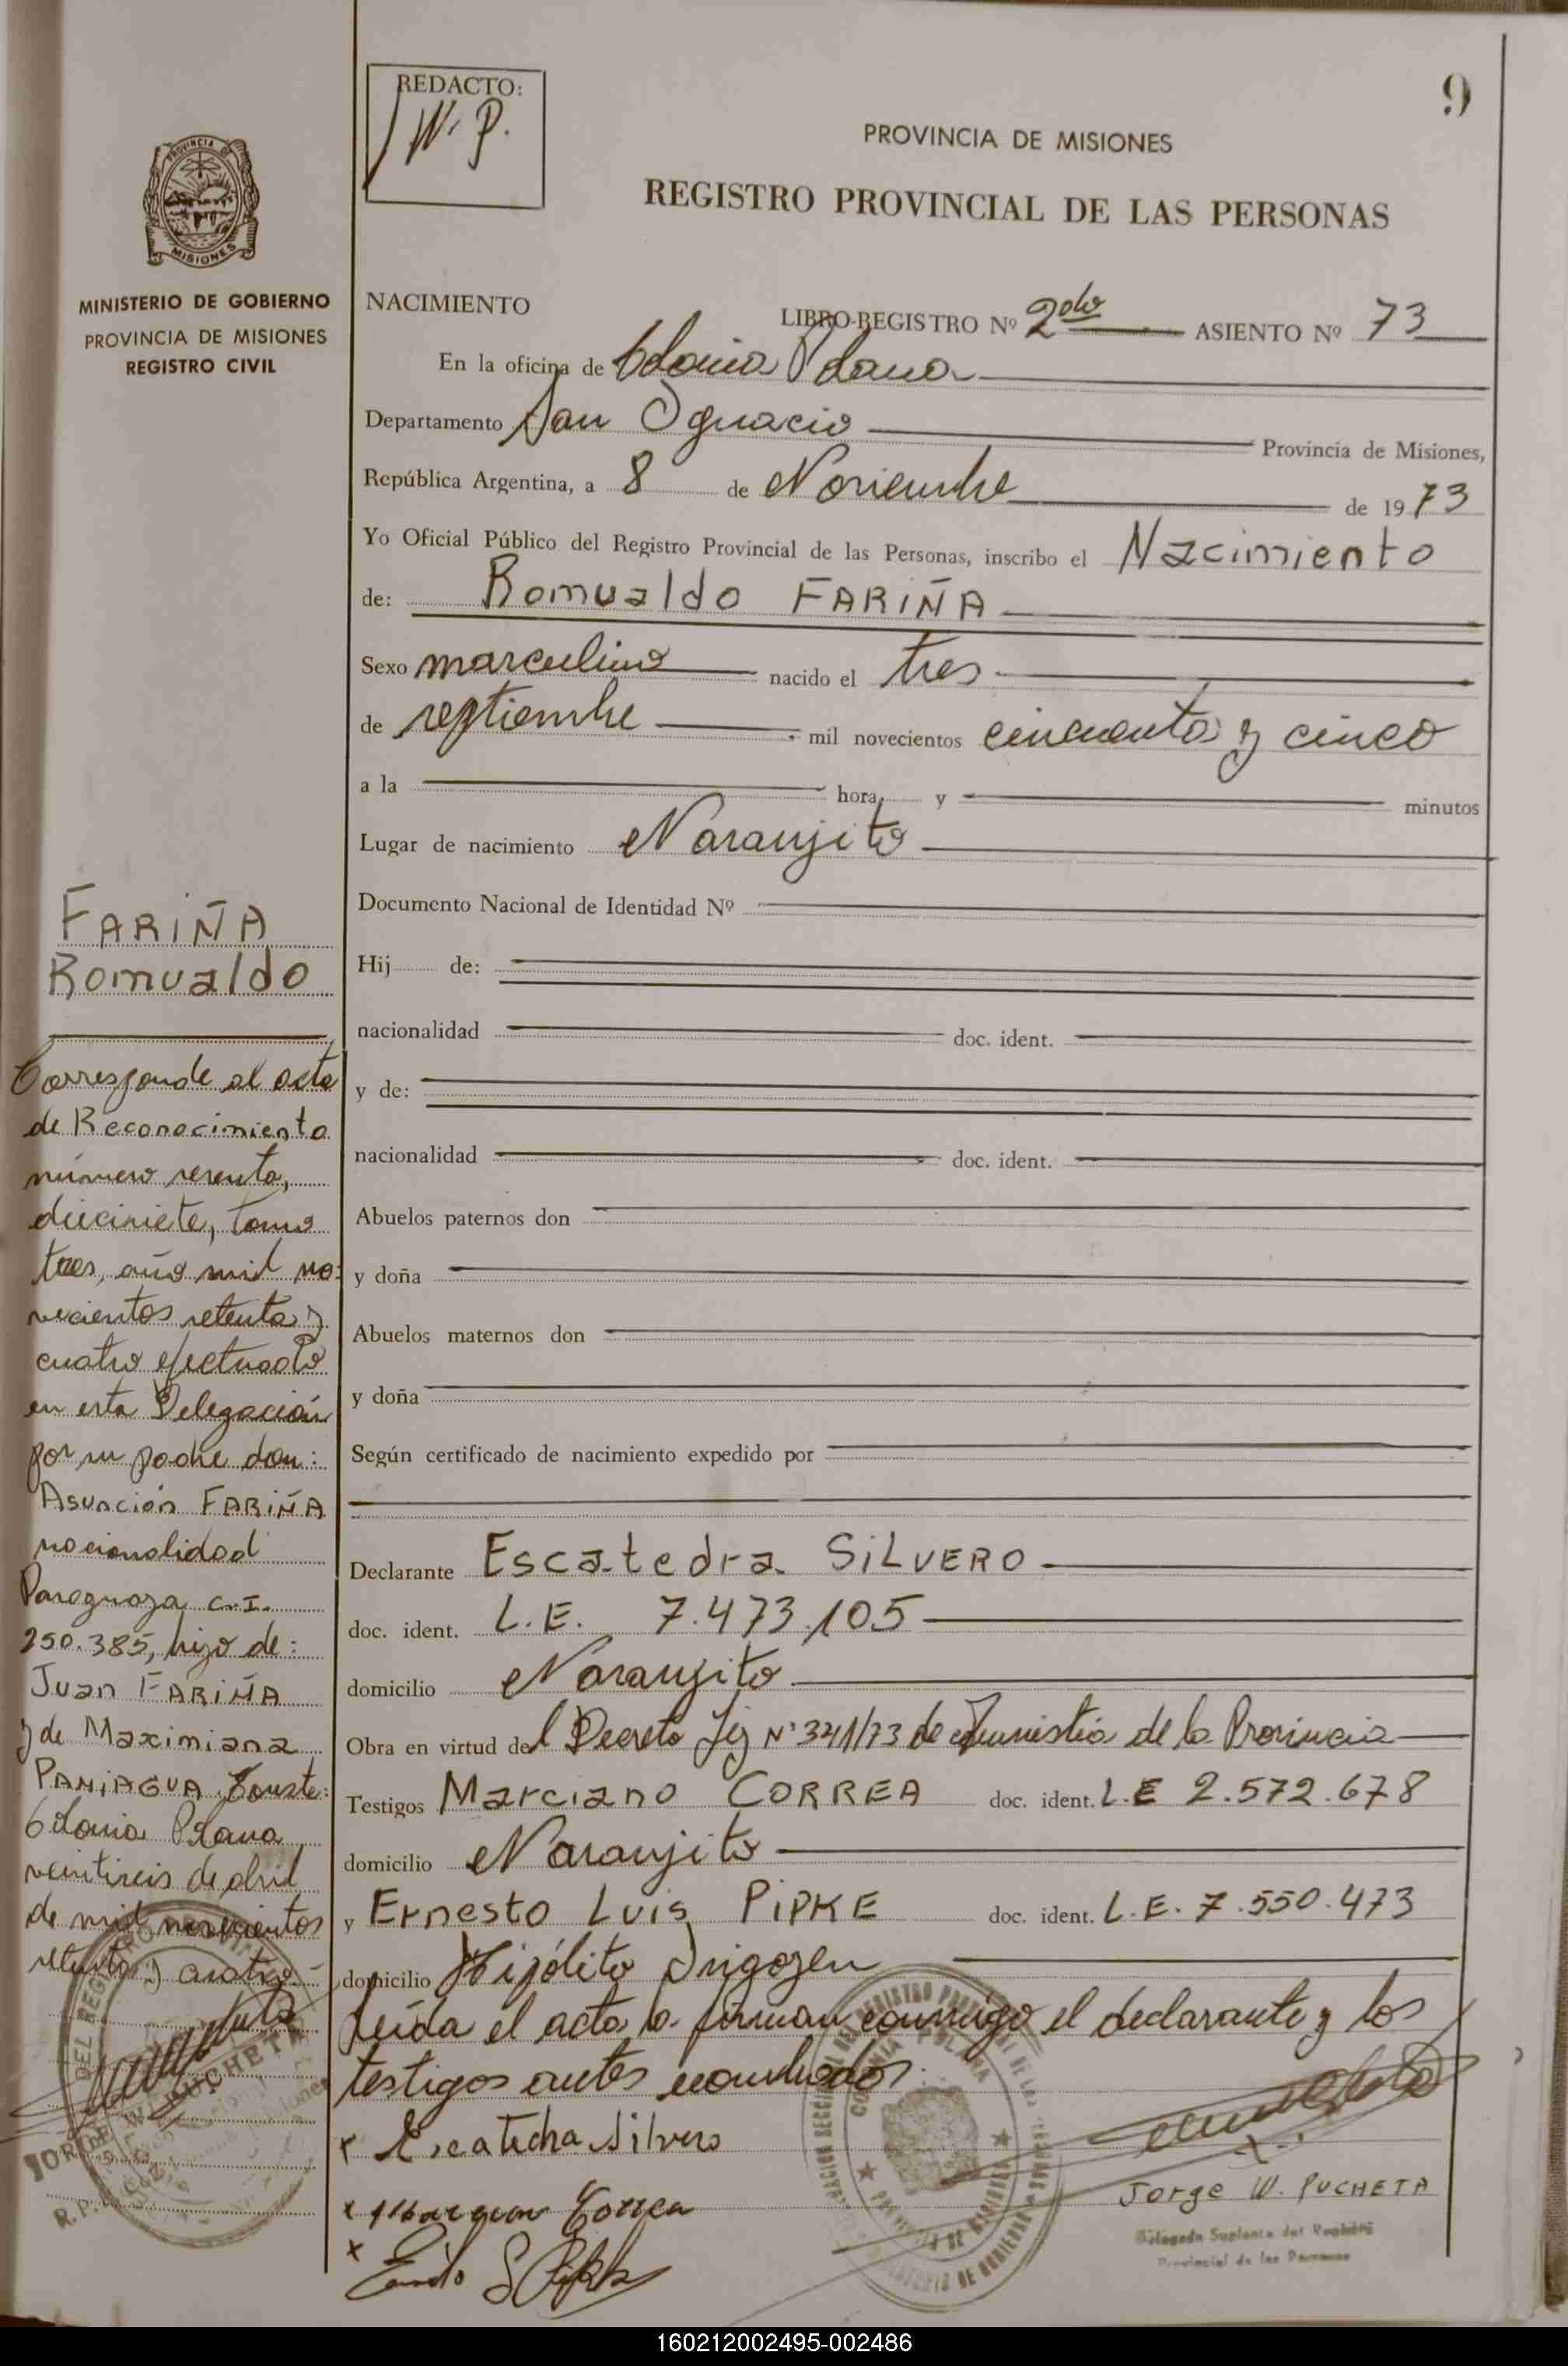 9
REDACTO:
W. P.
PROVINCIA DE MISIONES
REGISTRO PROVINCIAL DE LAS PERSONAS
PROVINCIA DE
MISIONES
MINISTERIO DE GOBIERNO
PROVINCIA DE MISIONES
REGISTRO CIVIL
NACIMIENTO LIBRO-REGISTRO Nº 2do ASIENTO Nº 73
En la oficina de Colonia Polana
Departamento San Ignacio Provincia de Misiones,
República Argentina, a 8 de Noviembre de 1973
Yo Oficial Público del Registro Provincial de las Personas, inscribo el Nacimiento
de: Romualdo FARIÑA
Sexo masculino nacido el tres
de septiembre mil novecientos cincuenta y cinco
a la hora y minutos
Lugar de nacimiento Naranjito
Documento Nacional de Identidad Nº
Hij de:
nacionalidad doc. ident.
y de:
nacionalidad doc. ident.
Abuelos paternos don
y doña
Abuelos maternos don
y doña
Según certificado de nacimiento expedido por
Declarante Escatedra SILVERO
doc. ident. L.E. 7.473.105
domicilio Naranjito
Obra en virtud del Decreto Ley Nº 341/73 de Amnistia de la Provincia
Testigos Marciano CORREA doc. ident. L.E 2.572.678
domicilio Naranjito
y Ernesto Luis PIPKE doc. ident. L.E. 7.550.473
domicilio Hipólito Irigoyen
Leída el acta, la firman conmigo el declarante y los
testigos antes nombrados
x Escatedra Silvero
x Marciano Correa
x
Jorge W. PUCHETA
Delegado Suplente del Registro
Provincial de las Personas
FARIÑA
Romualdo
Corresponde al acta
de Reconocimiento
número sesenta,
diecisiete, tomo
tres, año mil no-
vecientos setenta y
cuatro efectuado
en esta Delegación
por su padre don:
Asunción FARIÑA
nacionalidad
Paraguaya C.I.
250.385, hijo de:
Juan FARIÑA
y de Maximiana
PANIAGUA. Conste:
Colonia Polana
veintiseis de abril
de mil novecientos
setenta y cuatro.-
JORGE W. PUCHETA
160212002495-002486